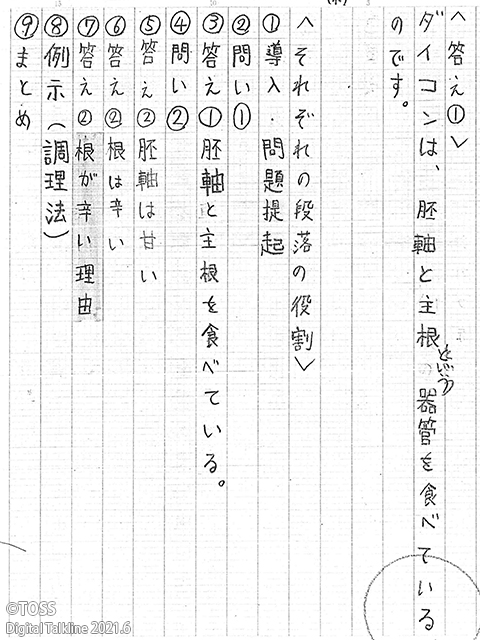 ＜答え①＞
ダイコンは、胚軸と主根という器管を食べている
のです。
＜それぞれの段落の役割＞
①導入・問題提起
②問い①
③答え①胚軸と主根を食べている。
④問い②
⑤答え②胚軸は甘い
⑥答え②根は辛い
⑦答え②根が辛い理由
⑧例示（調理法）
⑨まとめ
©TOSS
Digital Talkline 2021.6